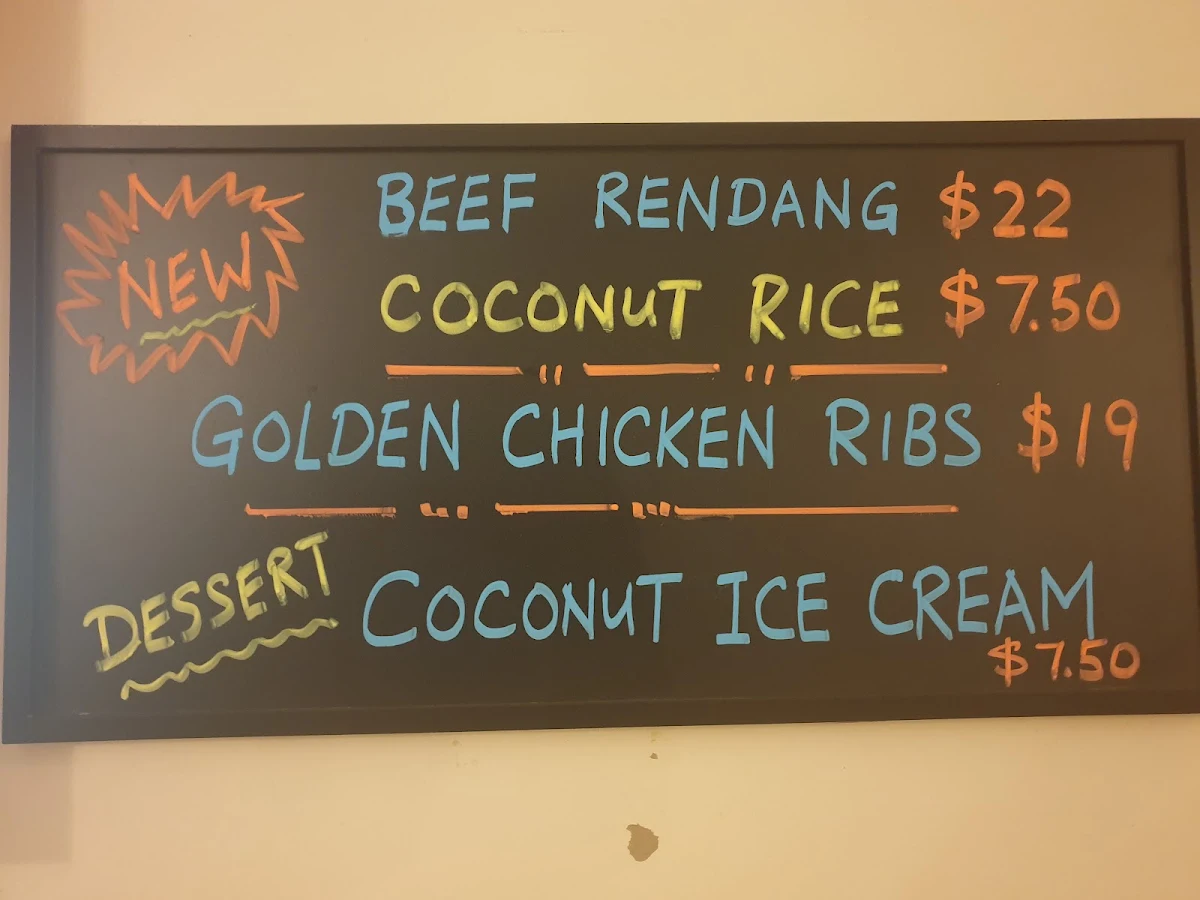 NEW
BEEF RENDANG $22
COCONUT RICE $7.50
GOLDEN CHICKEN RIBS $19
DESSERT
COCONUT ICE CREAM
$7.50